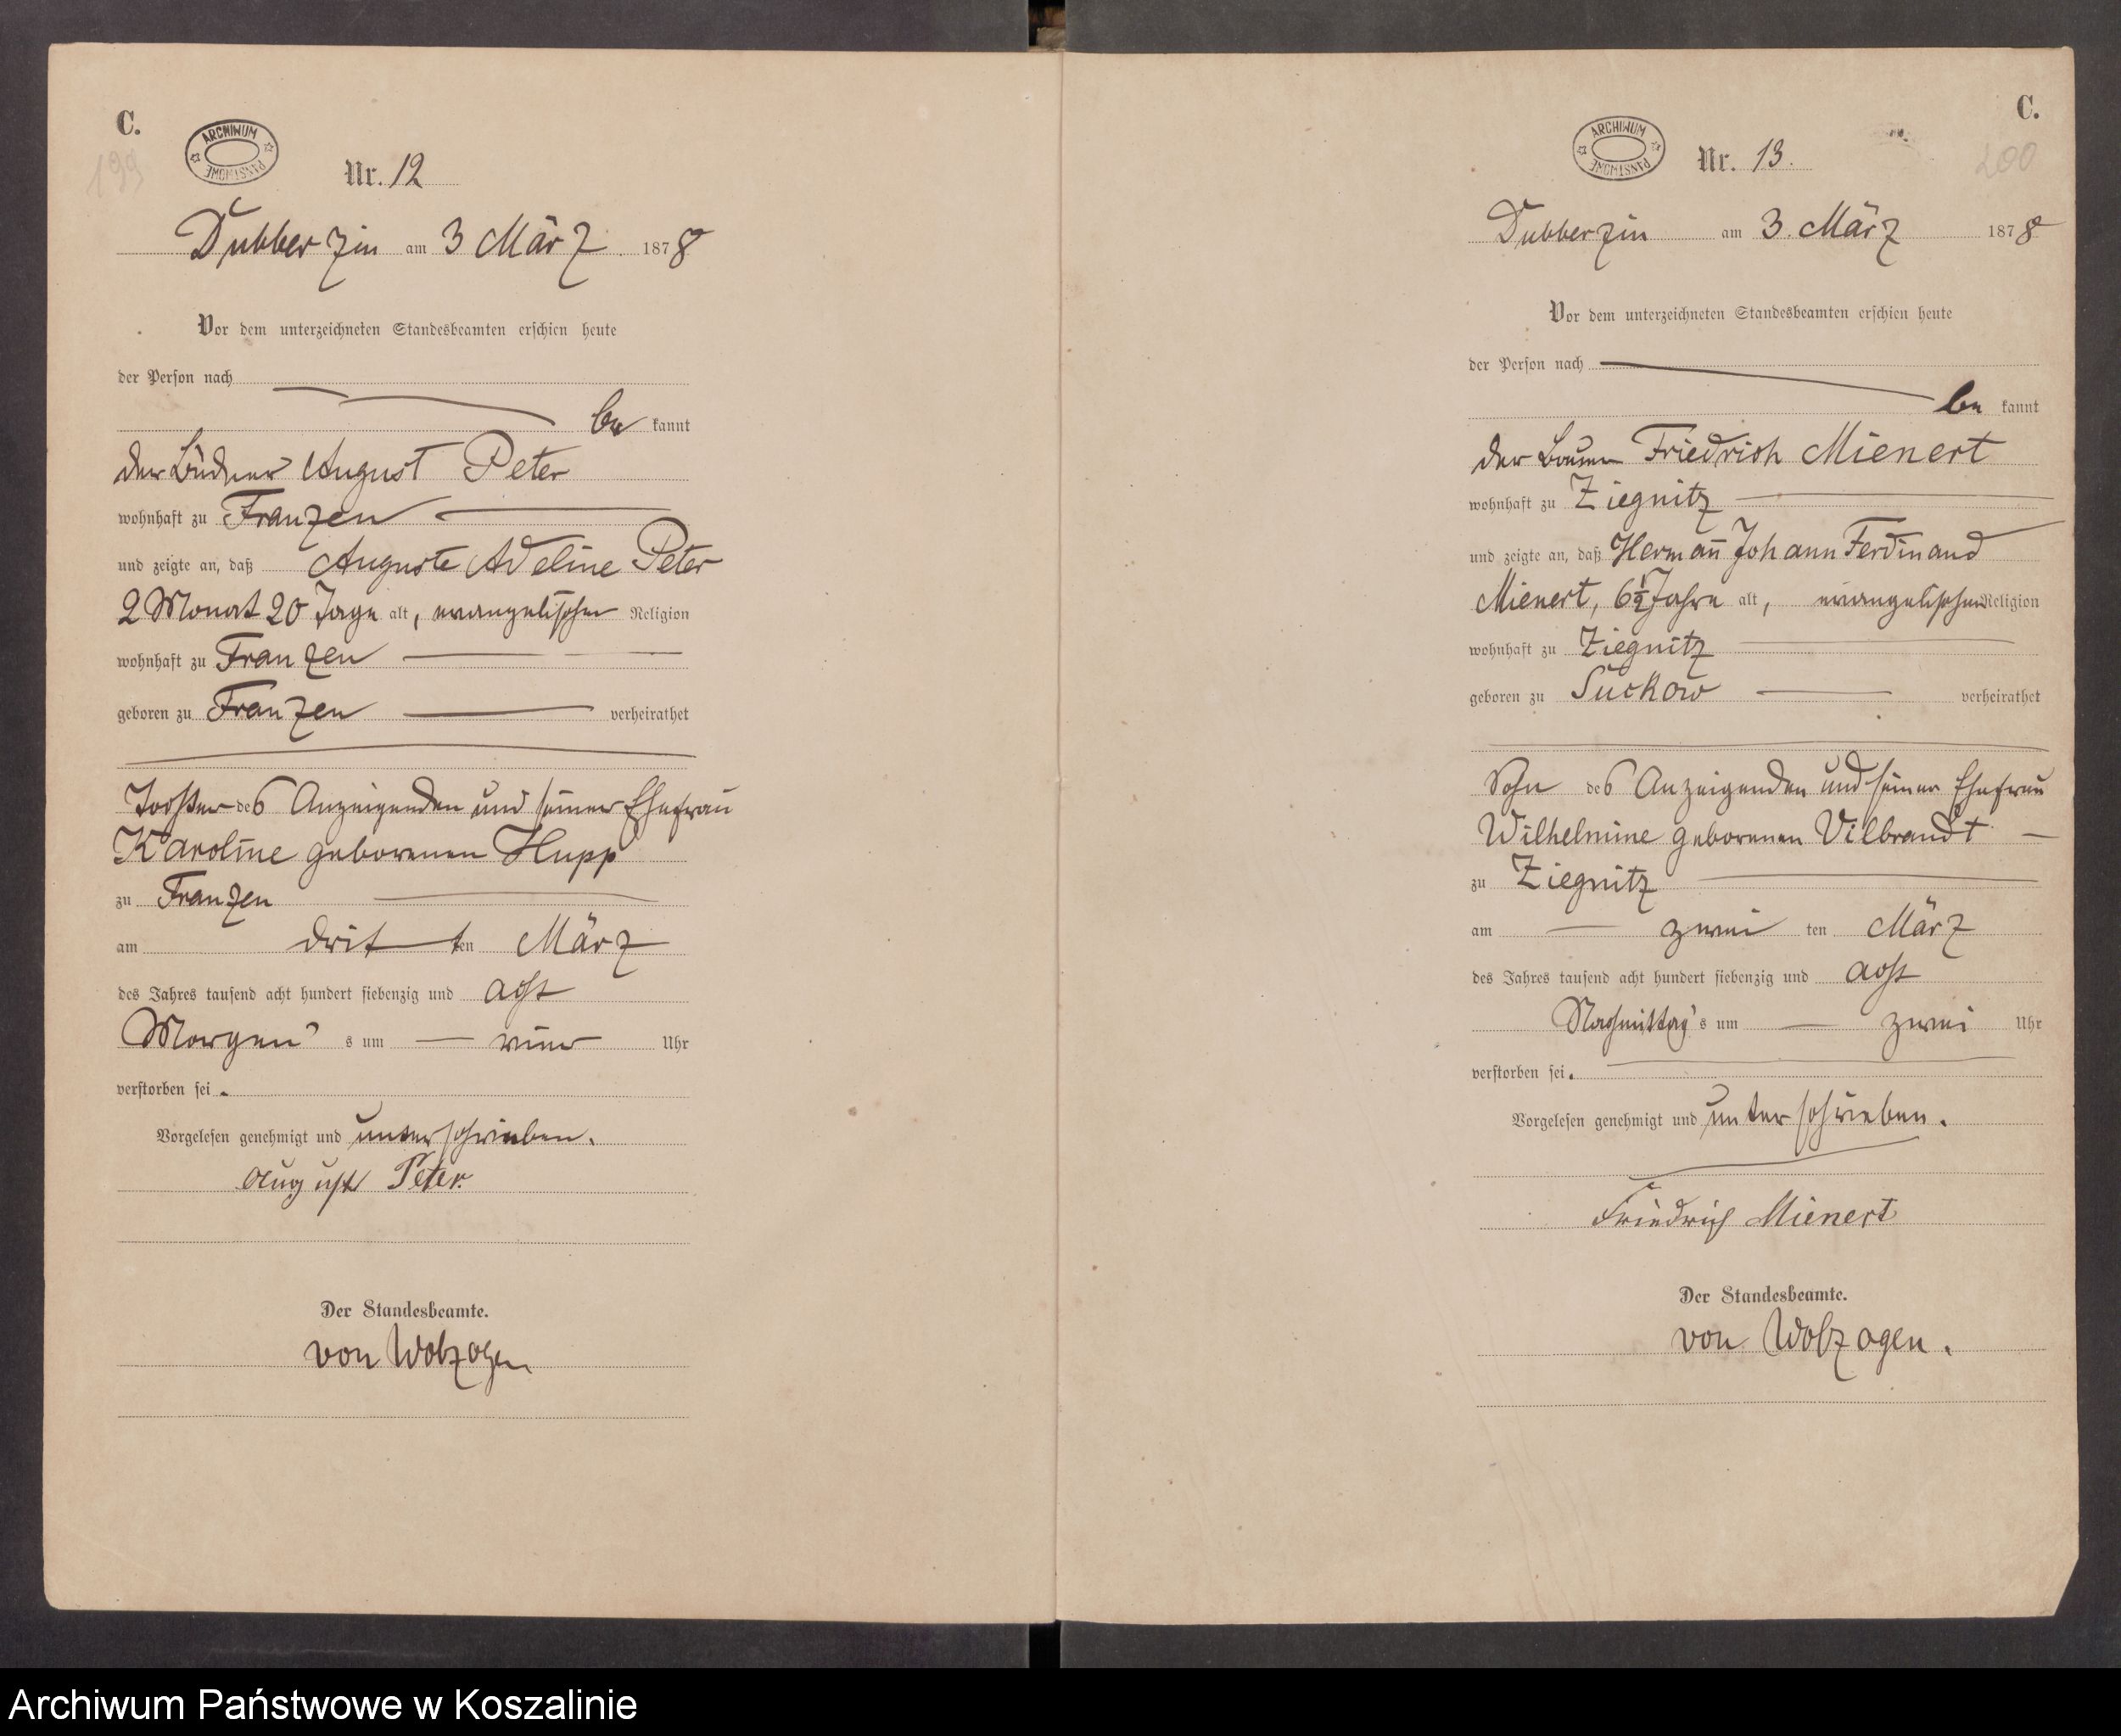 C.
199
ARCHIWUM PAŃSTWOWE
Nr. 12
Dubberzin am 3 März 1878
Vor dem unterzeichneten Standesbeamten erschien heute
der Person nach
be kannt
der Büdner August Peter
wohnhaft zu Franzen
und zeigte an, daß Auguste Adeline Peter
2 Monat 20 Tage alt, evangelischer Religion
wohnhaft zu Franzen
geboren zu Franzen verheirathet
Tochter des Anzeigenden und seiner Ehefrau
Karoline geborenen Hupp
zu Franzen
am dritten März
des Jahres tausend acht hundert siebenzig und acht
Morgen's um vier Uhr
verstorben sei.
Vorgelesen genehmigt und unterschrieben.
August Peter.
Der Standesbeamte.
von Wolzogen
C.
200
ARCHIWUM PAŃSTWOWE
Nr. 13.
Dubberzin am 3. März 1878
Vor dem unterzeichneten Standesbeamten erschien heute
der Person nach
be kannt
der Bauer Friedrich Mienert
wohnhaft zu Ziegnitz
und zeigte an, daß Hermañ Johann Ferdinand
Mienert, 6½ Jahre alt, evangelischer Religion
wohnhaft zu Ziegnitz
geboren zu Suckow verheirathet
Sohn des Anzeigenden und seiner Ehefrau
Wilhelmine geborenen Vilbrandt
zu Ziegnitz
am zwei ten März
des Jahres tausend acht hundert siebenzig und acht
Nachmittag's um zwei Uhr
verstorben sei.
Vorgelesen genehmigt und unterschrieben.
Friedrich Mienert
Der Standesbeamte.
von Wolzogen.
Archiwum Państwowe w Koszalinie